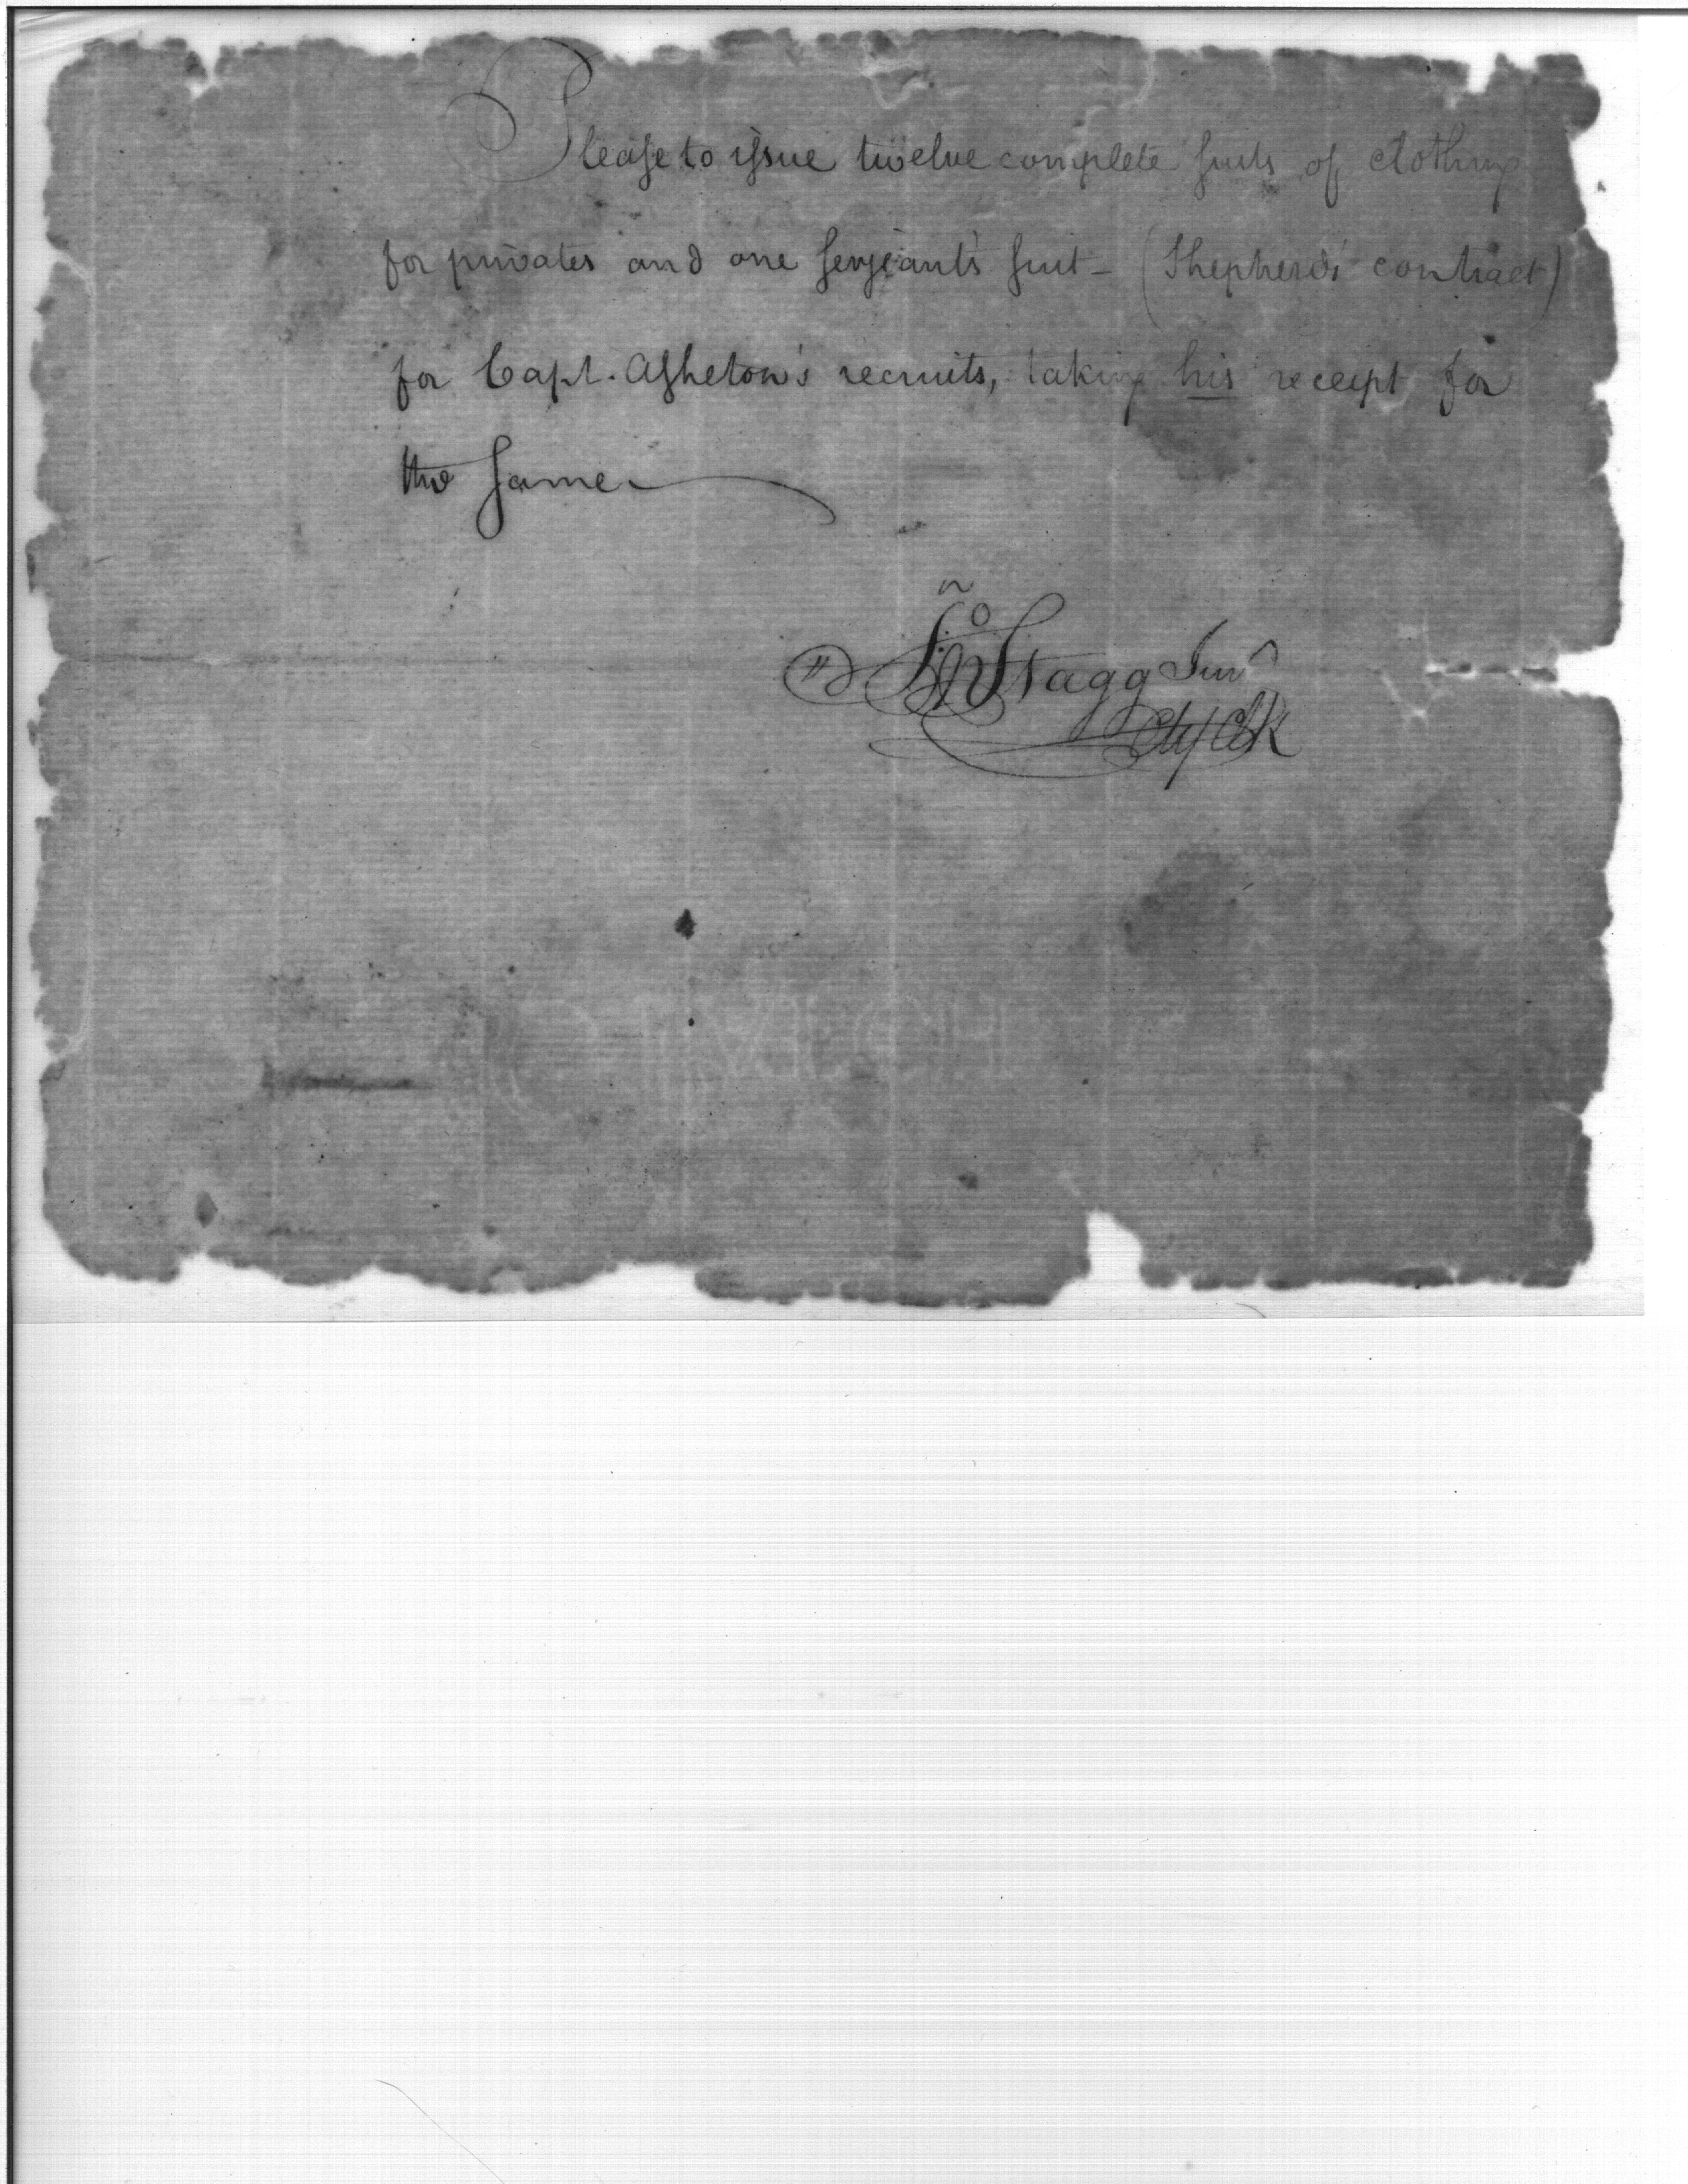 Please to issue twelve complete suits of clothing
for privates and one serjeant's suit - (Shepherd's contract)
for Capt. Asheton's recruits, taking his receipt for
the same
Jno Stagg Junr
Clk